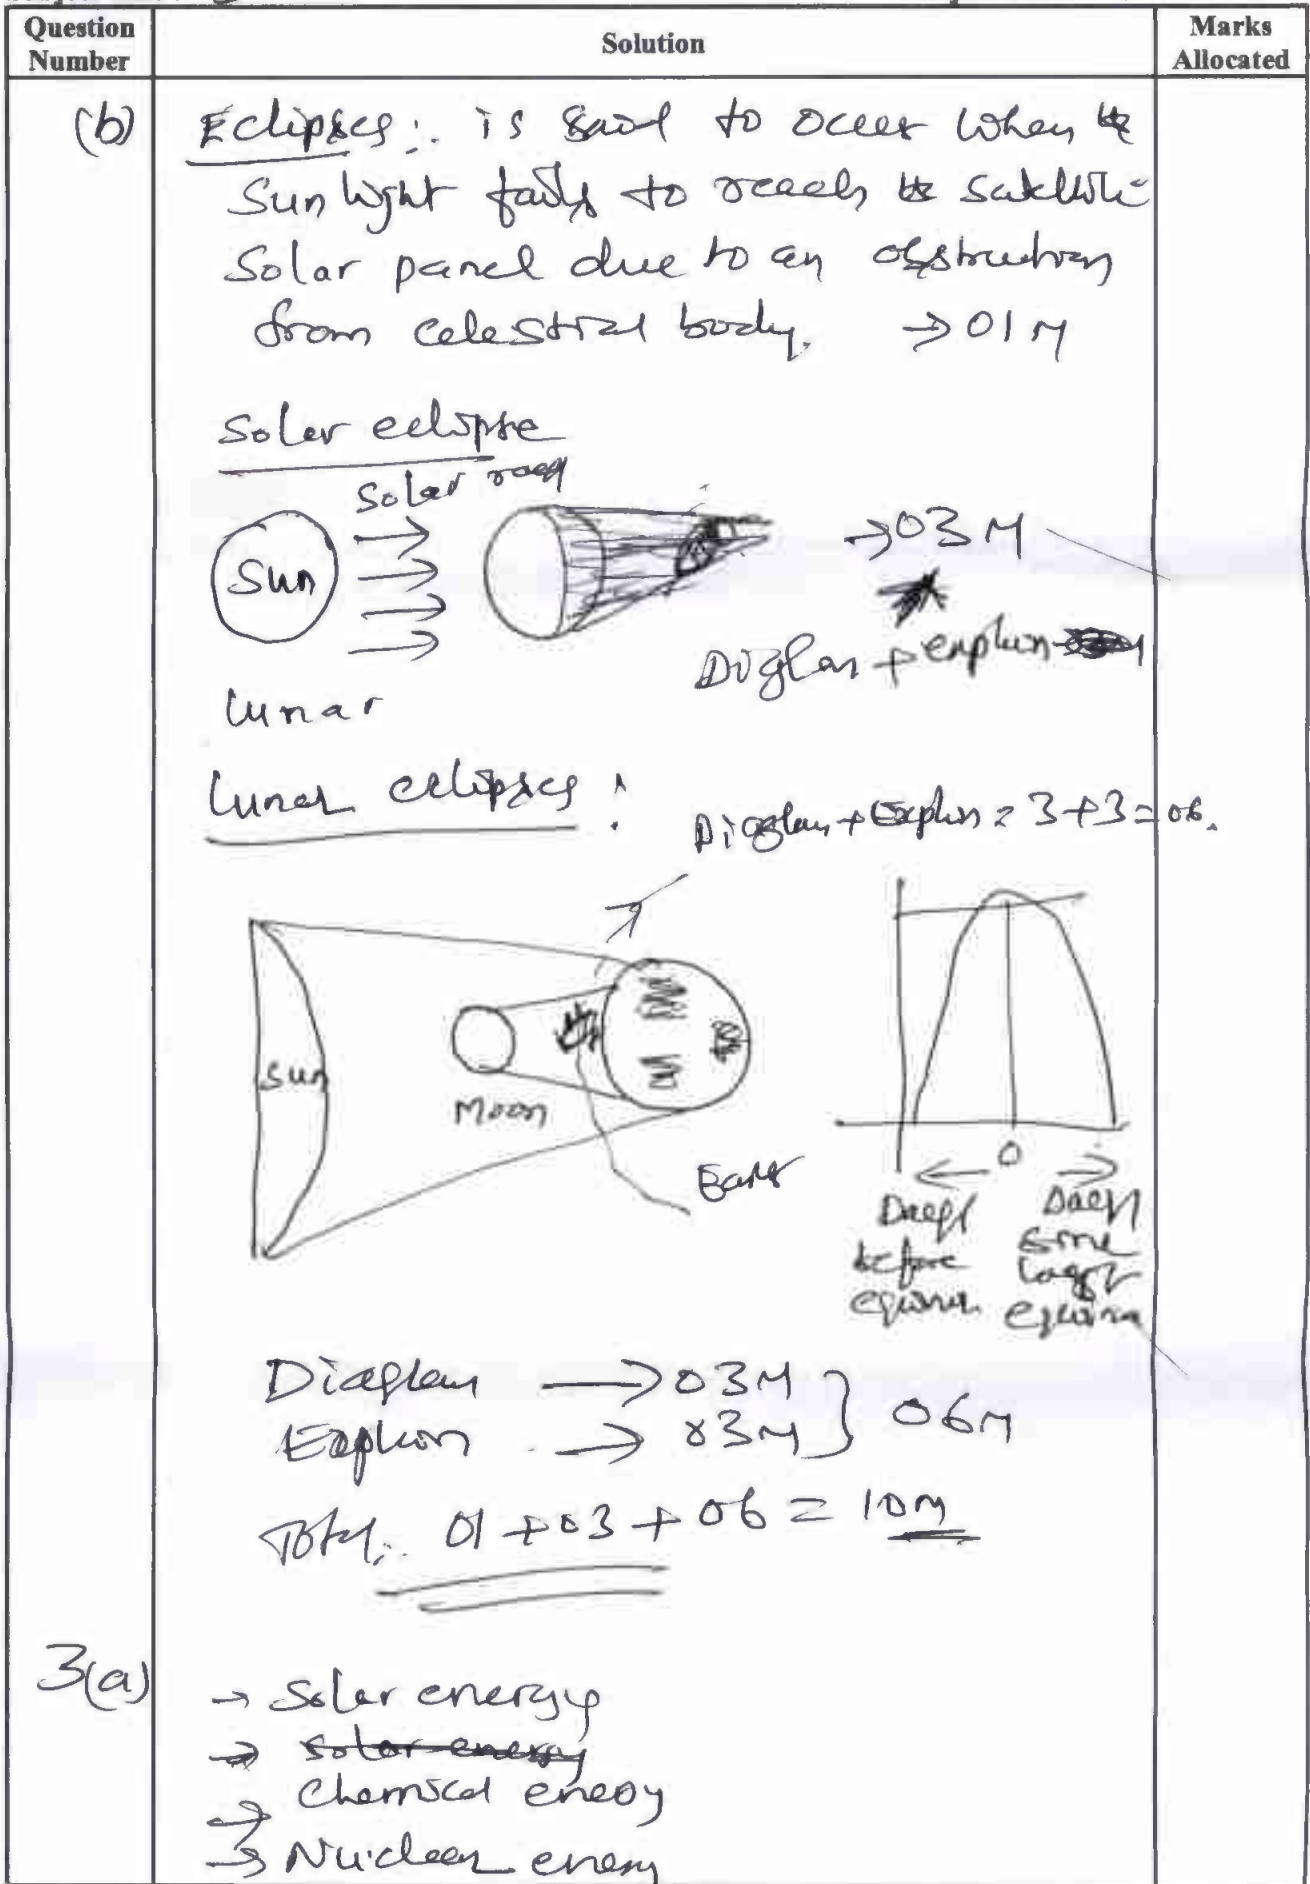 Question Number
Solution
Marks Allocated
(b)
Eclipses: is said to occur when the
Sun light fails to reach the satellite
Solar panel due to an obstruction
from celestial body. → 01 M
Solar eclipse
Solar rays
Sun
→ 03 M
Lunar
Lunar eclipses :
3 + 3 = 06.
Sun
Moon
Earth
0
Days
before
equinox
Days
equinox
→ 03M
→ 03M } 06M
Total: 01 + 03 + 06 = 10M
3(a)
→ Solar energy
→ solar energy
→ Chemical eneoy
→ Nuclear enery